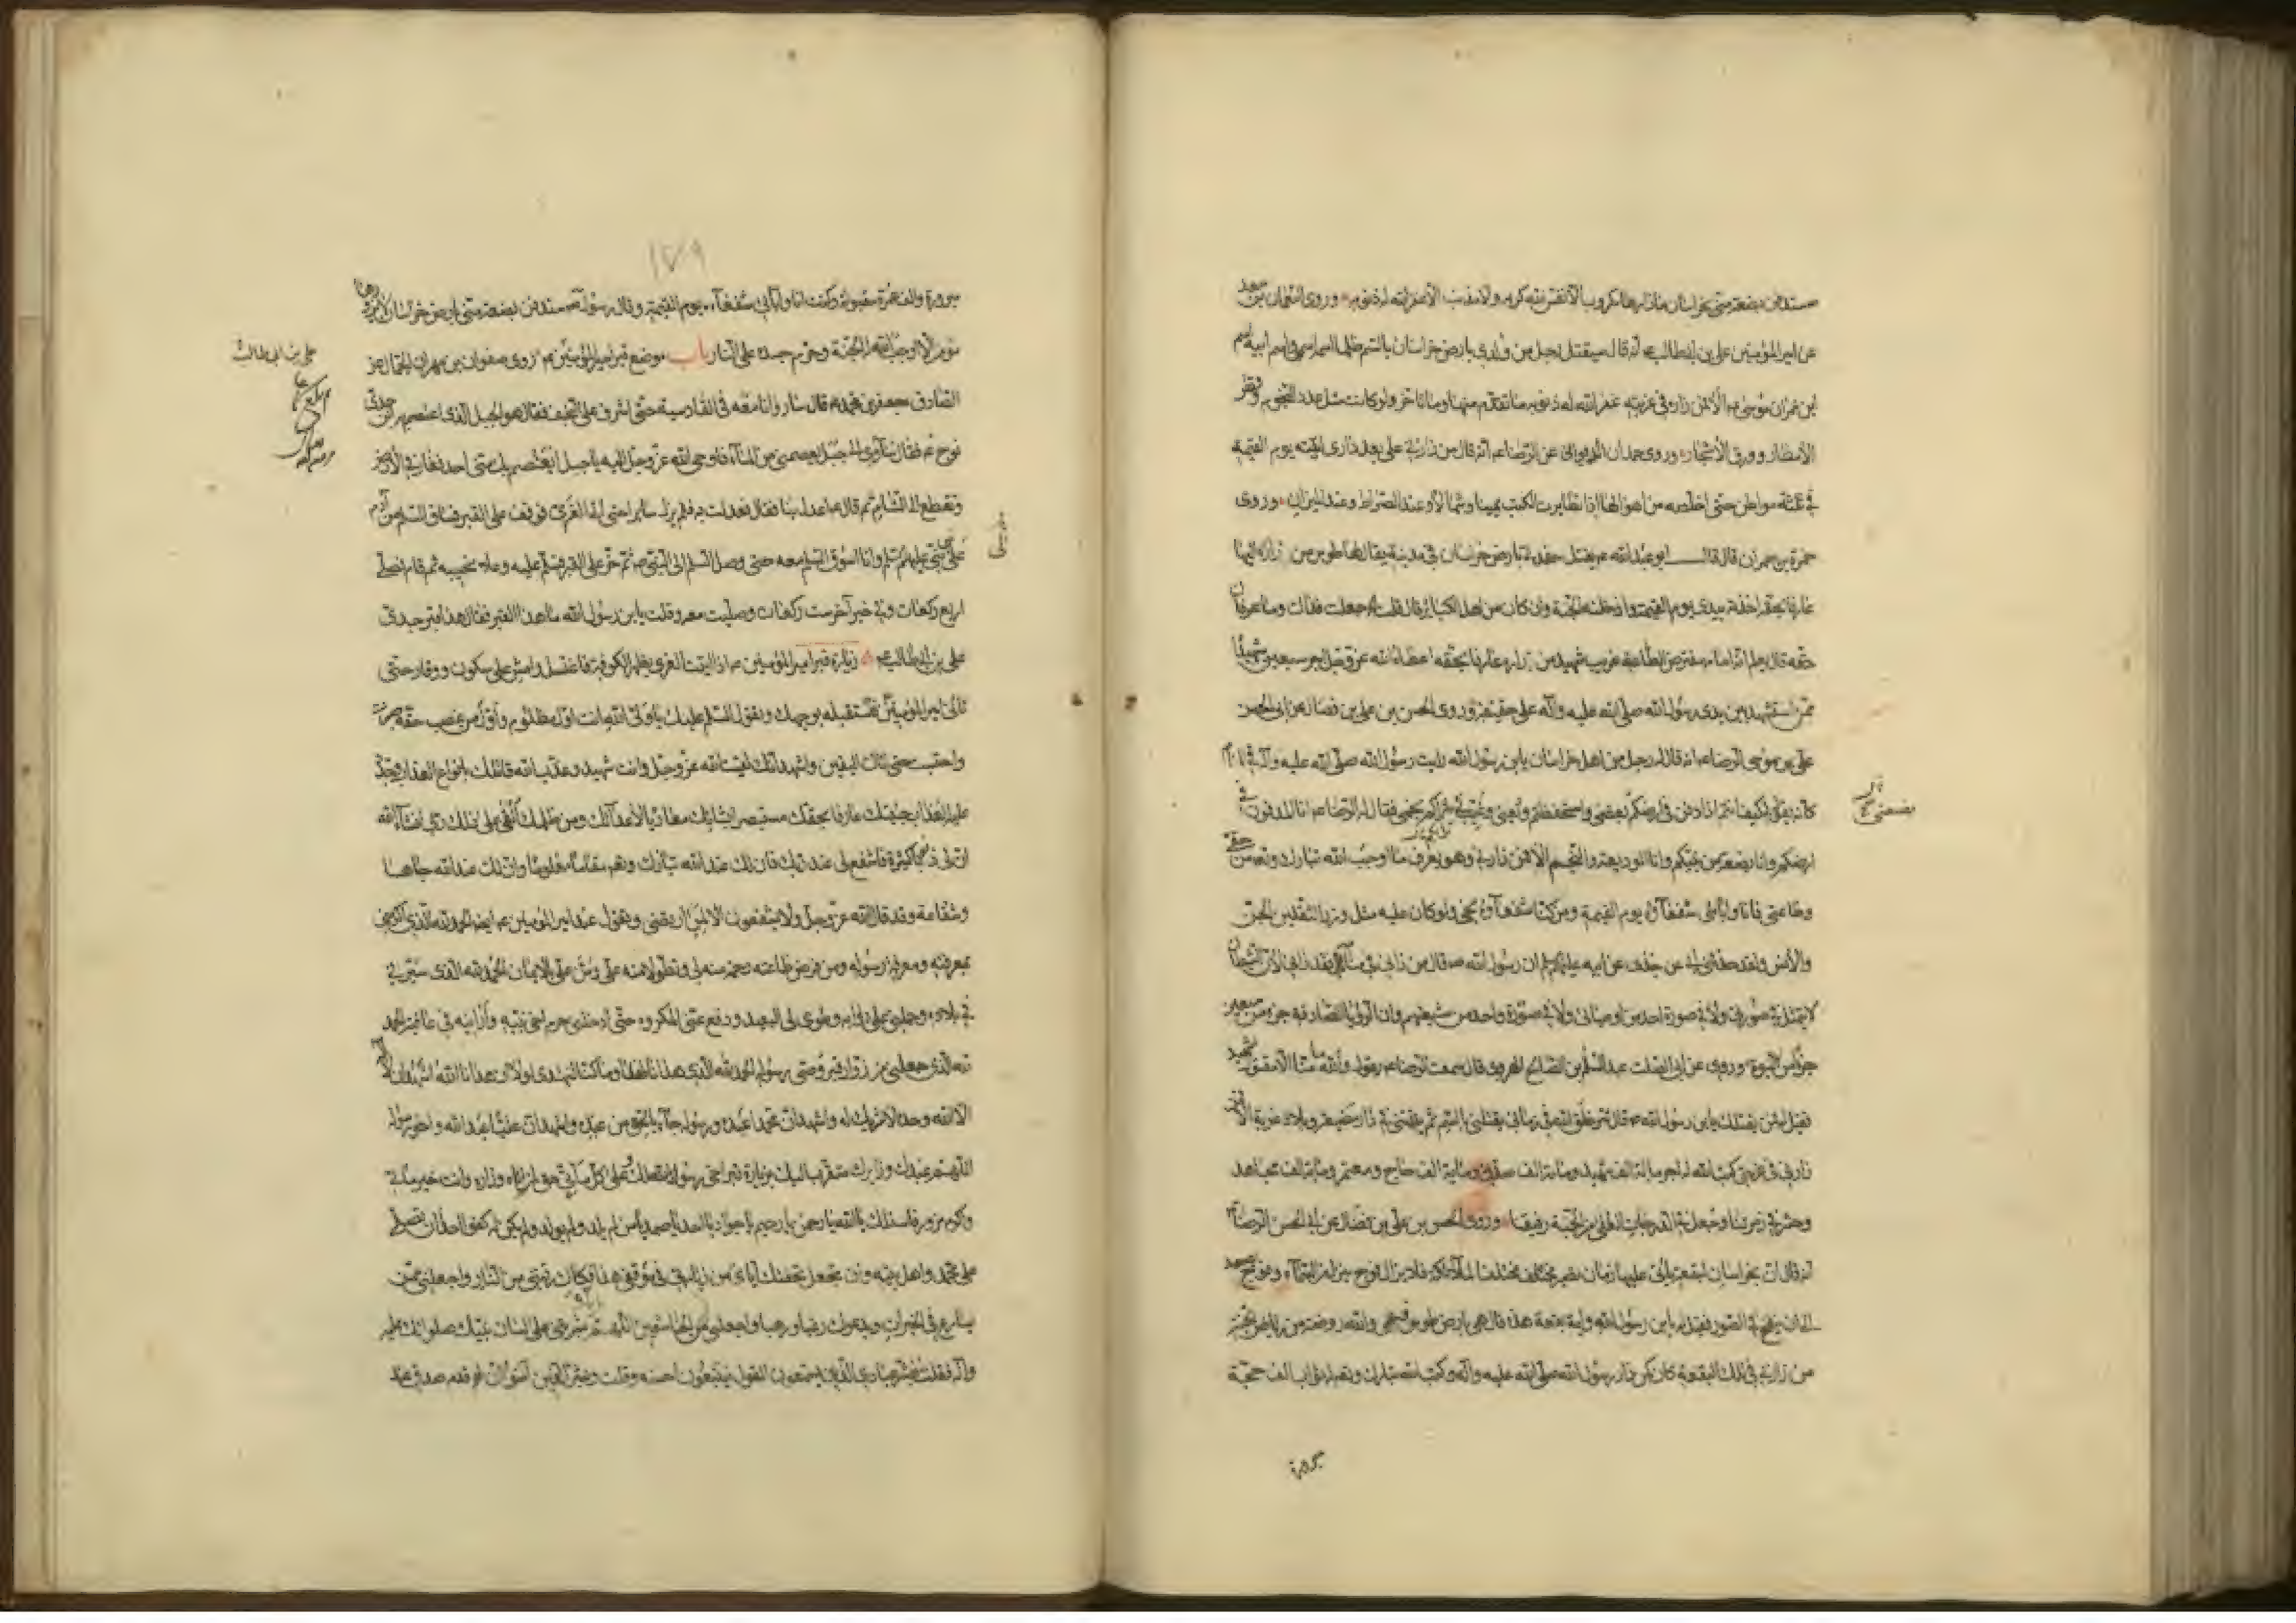 ستدفن بضعة منى بخراسان ما زارها مكروب الا نفس الله كربه ولا مذنب الا غفر الله له ذنوبه وروى النعمان بن سعد
عن امير المؤمنين على بن ابى طالب ع انه قال سيقتل رجل من ولدى بارض خراسان بالسم ظلما اسمه اسمى واسم ابيه اسم
ابن عمران موسى ع الا فمن زاره فى غربته غفر الله له ذنوبه ما تقدم منها وما تاخر ولو كانت مثل عدد النجوم وقطر
الامطار وورق الاشجار وروى حمدان الديوانى عن الرضا ع انه قال من زارنى على بعد دارى اتيته يوم القيمة
فى ثلثة مواطن حتى اخلصه من اهوالها اذا تطايرت الكتب يمينا وشمالا وعند الصراط وعند الميزان وروى
حمزة بن حمران قال قال ابو عبد الله ع يقتل حفدتى بارض خراسان فى مدينة يقال لها طوس من زاره اليها
عارفا بحقه اخذته بيدى يوم القيمة وادخلته الجنة وان كان من اهل الكباير قال قلت جعلت فداك وما عرفان
حقه قال يعلم انه امام مفترض الطاعة غريب شهيد من زاره عارفا بحقه اعطاه الله عز وجل اجر سبعين شهيدا
ممن استشهد بين يدى رسول الله صلى الله عليه وآله على حقيقة وروى الحسن بن على بن فضال عن ابى الحسن
على بن موسى الرضا ع انه قال له رجل من اهل خراسان يابن رسول الله رايت رسول الله صلى الله عليه وآله فى المنام
كانه يقول لى كيف انتم اذا دفن فى ارضكم بعضى واستحفظتم وديعتى وغيب فى ثراكم نجمى فقال له الرضا ع انا المدفون فى
ارضكم وانا بضعة من نبيكم وانا الوديعة والنجم الا فمن زارنى وهو يعرف ما اوجب الله تبارك وتعالى من حقى
وطاعتى فانا وابائى شفعاؤه يوم القيمة ومن كنا شفعاؤه نجى ولو كان عليه مثل وزر الثقلين الجن
والانس ولقد حدثنى ابى عن جدى عن ابيه عليهم السلم ان رسول الله ص قال من رانى فى منامه فقد رانى لان الشيطان
لا يتمثل فى صورتى ولا فى صورة احد من اوصيائى ولا فى صورة واحد من شيعتهم وان الرؤيا الصادقة جزء من سبعين
جزؤا من النبوة وروى عن ابى الصلت عبد السلم بن الصالح الهروى قال سمعت الرضا ع يقول والله ما منا الا مقتول شهيد
فقيل له فمن يقتلك يابن رسول الله ص قال شر خلق الله فى زمانى يقتلنى بالسم ثم يدفننى فى دار مضيعة وبلاد غربة الا فمن
زارنى فى غربتى كتب الله له اجر ماية الف شهيد وماية الف صديق وماية الف حاج ومعتمر وماية الف مجاهد
وحشر فى زمرتنا وجعل فى الدرجات العلى من الجنة رفيقنا وروى الحسن بن على بن فضال عن ابى الحسن الرضا ع
انه قال ان بخراسان لبقعة ياتى عليها زمان تصير مختلف الملائكة فلا يزال فوج ينزل من السماء وفوج يصعد
الى ان ينفخ فى الصور فقيل له يابن رسول الله واية بقعة هذه قال هى بارض طوس فهى والله روضة من رياض الجنة
من زارنى فى تلك البقعة كان كمن زار رسول الله صلى الله عليه وآله وكتب الله تبارك وتعالى له ثواب الف حجة
مبرورة
بضعتى
١٧٩
مبرورة والف عمرة مقبولة وكنت انا وابائى شفعاءه يوم القيمة وقال رسول الله ص ستدفن بضعة منى بارض خراسان لا يزورها
مؤمن الا اوجب الله له الجنة وحرم جسده على النار باب موضع قبر امير المؤمنين ع روى صفوان بن مهران الجمال عن
الصادق جعفر بن محمد ع قال سار وانا معه فى القادسية حتى اشرف على النجف فقال هو الجبل الذى اعتصم به ابن جدى
نوح ع فقال سآوى الى جبل يعصمنى من الماء فاوحى الله عز وجل اليه يا جبل ايعتصم بك منى احد فغار فى الارض
وتقطع الى الشام ثم قال ع اعدل بنا فقال فعدلت به فلم يزل سايرا حتى اتى الغرى فوقف على القبر فساق السلم من آدم
على نبى نبى عليهم السلم وانا اسوق السلم معه حتى وصل السلم الى النبى ص ثم خر على القبر فسلم عليه وعلا نحيبه ثم قام فصلى
اربع ركعات وفى خبر آخر ست ركعات وصليت معه وقلت يابن رسول الله ما هذا القبر فقال هذا قبر جدى
على بن ابى طالب ع زيارة قبر امير المؤمنين ع اذا اتيت الغرى بظهر الكوفة فاغتسل وامش على سكون ووقار حتى
تاتى امير المؤمنين فتستقبله بوجهك وتقول السلم عليك يا ولى الله انت اول مظلوم واول من غصب حقه صبرت
واحتسبت حتى اتاك اليقين واشهد انك لقيت الله عز وجل وانت شهيد وعذب الله قاتلك بانواع العذاب وجدد
عليه العذاب جئتك عارفا بحقك مستبصرا بشانك معاديا لاعدائك ومن ظلمك القى على ذلك ربى ان شاء الله
ان لى ذنوبا كثيرة فاشفع لى عند ربك فان لك عند الله تبارك وتعالى مقاما معلوما وان لك عند الله جاها
وشفاعة وقد قال الله عز وجل ولا يشفعون الا لمن ارتضى وتقول عند امير المؤمنين ع ايضا الحمد لله الذى اكرمنى
بمعرفته ومعرفة رسوله ومن فرض طاعته رحمة منه لى وتطولا منه على ومن على بالايمان الحمد لله الذى سيرنى
فى بلاده وحملنى على دوابه وطوى لى البعيد ودفع عنى المكروه حتى ادخلنى حرم اخى نبيه وارانيه فى عافية الحمد
لله الذى جعلنى من زوار قبر وصى رسوله الحمد لله الذى هدانا لهذا وما كنا لنهتدى لولا ان هدانا الله اشهد ان لا اله
الا الله وحده لا شريك له واشهد ان محمدا عبده ورسوله جاء بالحق من عنده واشهد ان عليا عبد الله واخو رسوله
اللهم عبدك وزايرك متقرب اليك بزيارة قبر اخى رسولك وعلى كل ماتى حق لمن اتاه وزاره وانت خير ماتى
واكرم مزور فاسئلك يا الله يا رحمن يا رحيم يا جواد يا احد يا صمد يا من لم يلد ولم يولد ولم يكن له كفوا احد ان تصلى
على محمد واهل بيته وان تجعل تحفتك اياى من زيارتى فى موقفى هذا فكاك رقبتى من النار واجعلنى ممن
يسارع فى الخيرات ويدعوك رغبا ورهبا واجعلنى من الخاشعين اللهم انك بشرتنى على لسان نبيك صلواتك عليه
وآله فقلت فبشر عبادى الذين يستمعون القول فيتبعون احسنه وقلت وبشر الذين آمنوا ان لهم قدم صدق عند
على بن ابى طالب